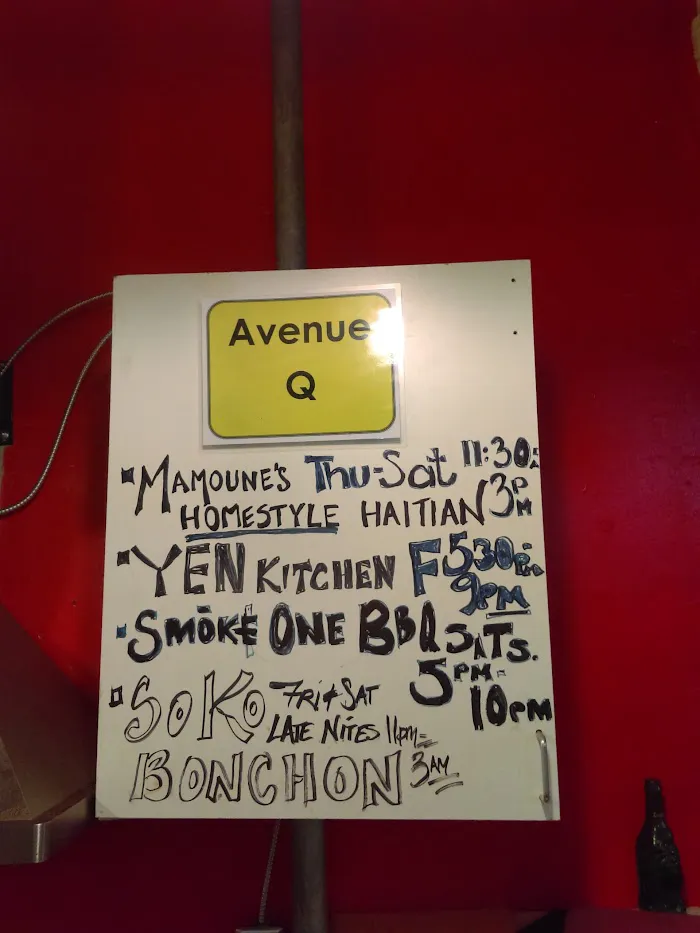 Avenue
Q
MAMOUNE'S Thu-Sat 11:30-
HOMESTYLE HAITIAN 3PM
YEN KITCHEN F 530PM-
9PM
SMOKE ONE BBQ SATS.
5PM-
10PM
SOKO FRI & SAT
LATE NITES 11pm-
BONCHON 3AM